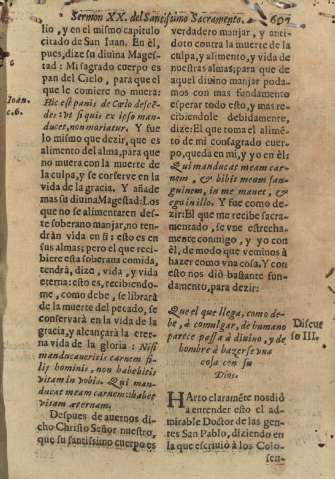 Sermon XX. del Santissimo Sacramento. 607
lio, y en el mismo capitulo
citado de San Iuan. En èl,
pues, dize su divina Mages-
tad: Mi sagrado cuerpo es
pan del Cielo, para que el
que le comiere no muera:
Hic est panis de Cœlo descẽ-
dens: ut si quis ex ipso man-
ducet, non moriatur. Y fue
lo mismo que dezir, que es
alimento del alma, para que
no muera con la muerte de
la culpa, y se conserve en la
vida de la gracia. Y añade
mas su divina Magestad: Los
que no se alimentaren des-
te soberano manjar, no ten-
dràn vida en sì: esto es en
sus almas; pero el que reci-
biere esta soberana comida,
tendrà, dize, vida, y vida
eterna: esto es, recibiendo-
me, como debe, se librarà
de la muerte del pecado, se
conservarà en la vida de la
gracia, y alcançarà la eter-
na vida de la gloria: Nisi
manducaveritis carnem fi-
lij hominis, non habebitis
vitam in vobis. Qui man-
ducat meam carnem: habet
vitam æternam.
Despues de avernos di-
cho Christo Señor nuestro,
que su santissimo cuerpo es
Ioan.
c.6.
verdadero manjar, y anti-
doto contra la muerte de la
culpa, y alimento, y vida de
nuestras almas; para que de
aquel divino manjar poda-
mos con mas fundamento
esperar todo esto, y mas re-
cibiendole debidamente,
dize: El que toma el alimẽ-
to de mi consagrado cuer-
po, queda en mi, y yo en èl:
Qui manducat meam car-
nem, & bibit meum san-
guinem, in me manet, &
ego in illo. Y fue como de-
zir: El que me recibe sacra-
mentado, se vne estrecha-
mente conmigo, y yo con
èl, de modo que venimos à
hazer como vna cosa. Y con
esto nos diò bastante fun-
damento, para dezir:
Que el que llega, como de-
be, à comulgar, de humano
parece passa à divino, y de
hombre à hazerse vna
cosa con su
Dios.
Discur
so III.
HArto claramẽte nos diò
a entender esto el ad-
mirable Doctor de las gen-
tes San Pablo, diziendo en
la que escriviò à los Colo-
sen-